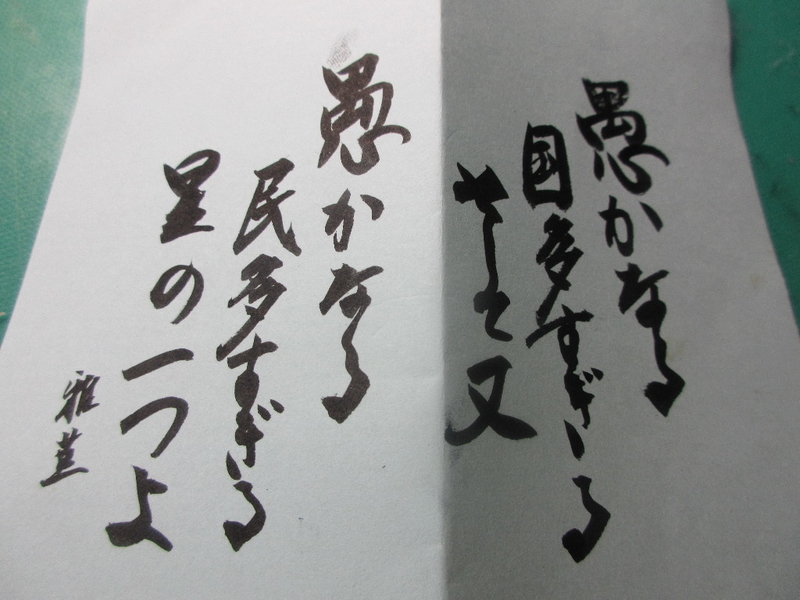 愚かなる
国多すぎる
そして又
愚かなる
民多すぎる
星の
一つよ